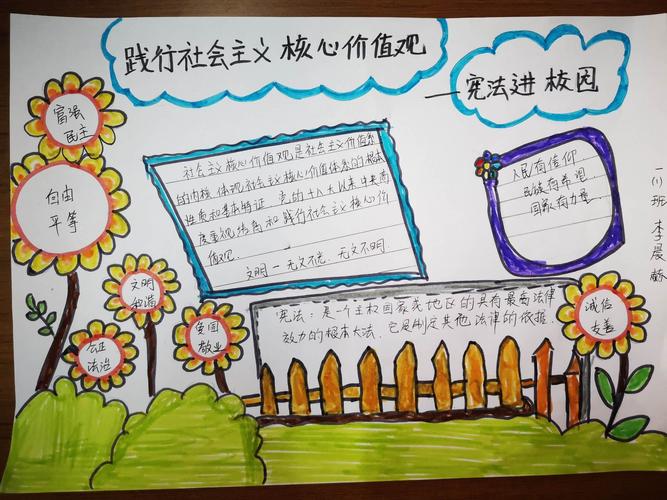 践行社会主义核心价值观
——宪法进校园
富强
民主
自由
平等
文明
和谐
公正
法治
爱国
敬业
诚信
友善
社会主义核心价值观是社会主义价值系
的内核 体现社会主义核心价值体系的根本
性质和基本特征 党的十八大以来 中央高
度重视培育和践行社会主义核心价
值观.
文明一无文不远 无文不明
人民有信仰
民族有希望
国家有力量
宪法：是一个主权国家或地区的具有最高法律
效力的根本大法.它是制定其他法律的依据.
一(1)班 李晨